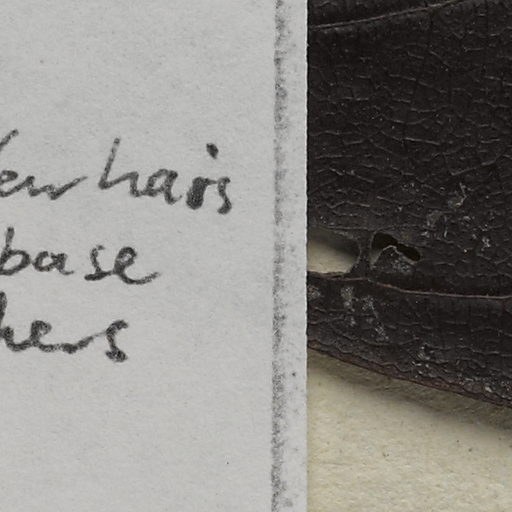 few hairs
base
hers